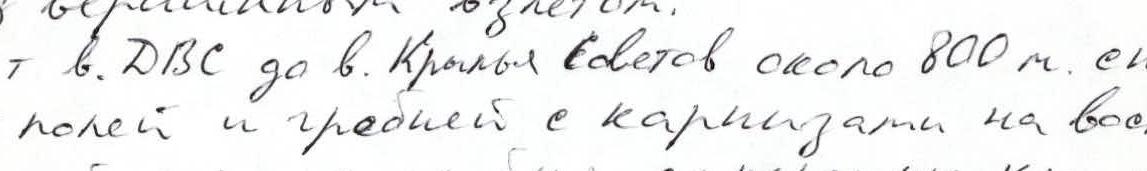 вершинным взлетом.
т в. ДВС до в. Крылья Советов около 800 м. сн
полей и гребней с карнизами на вос